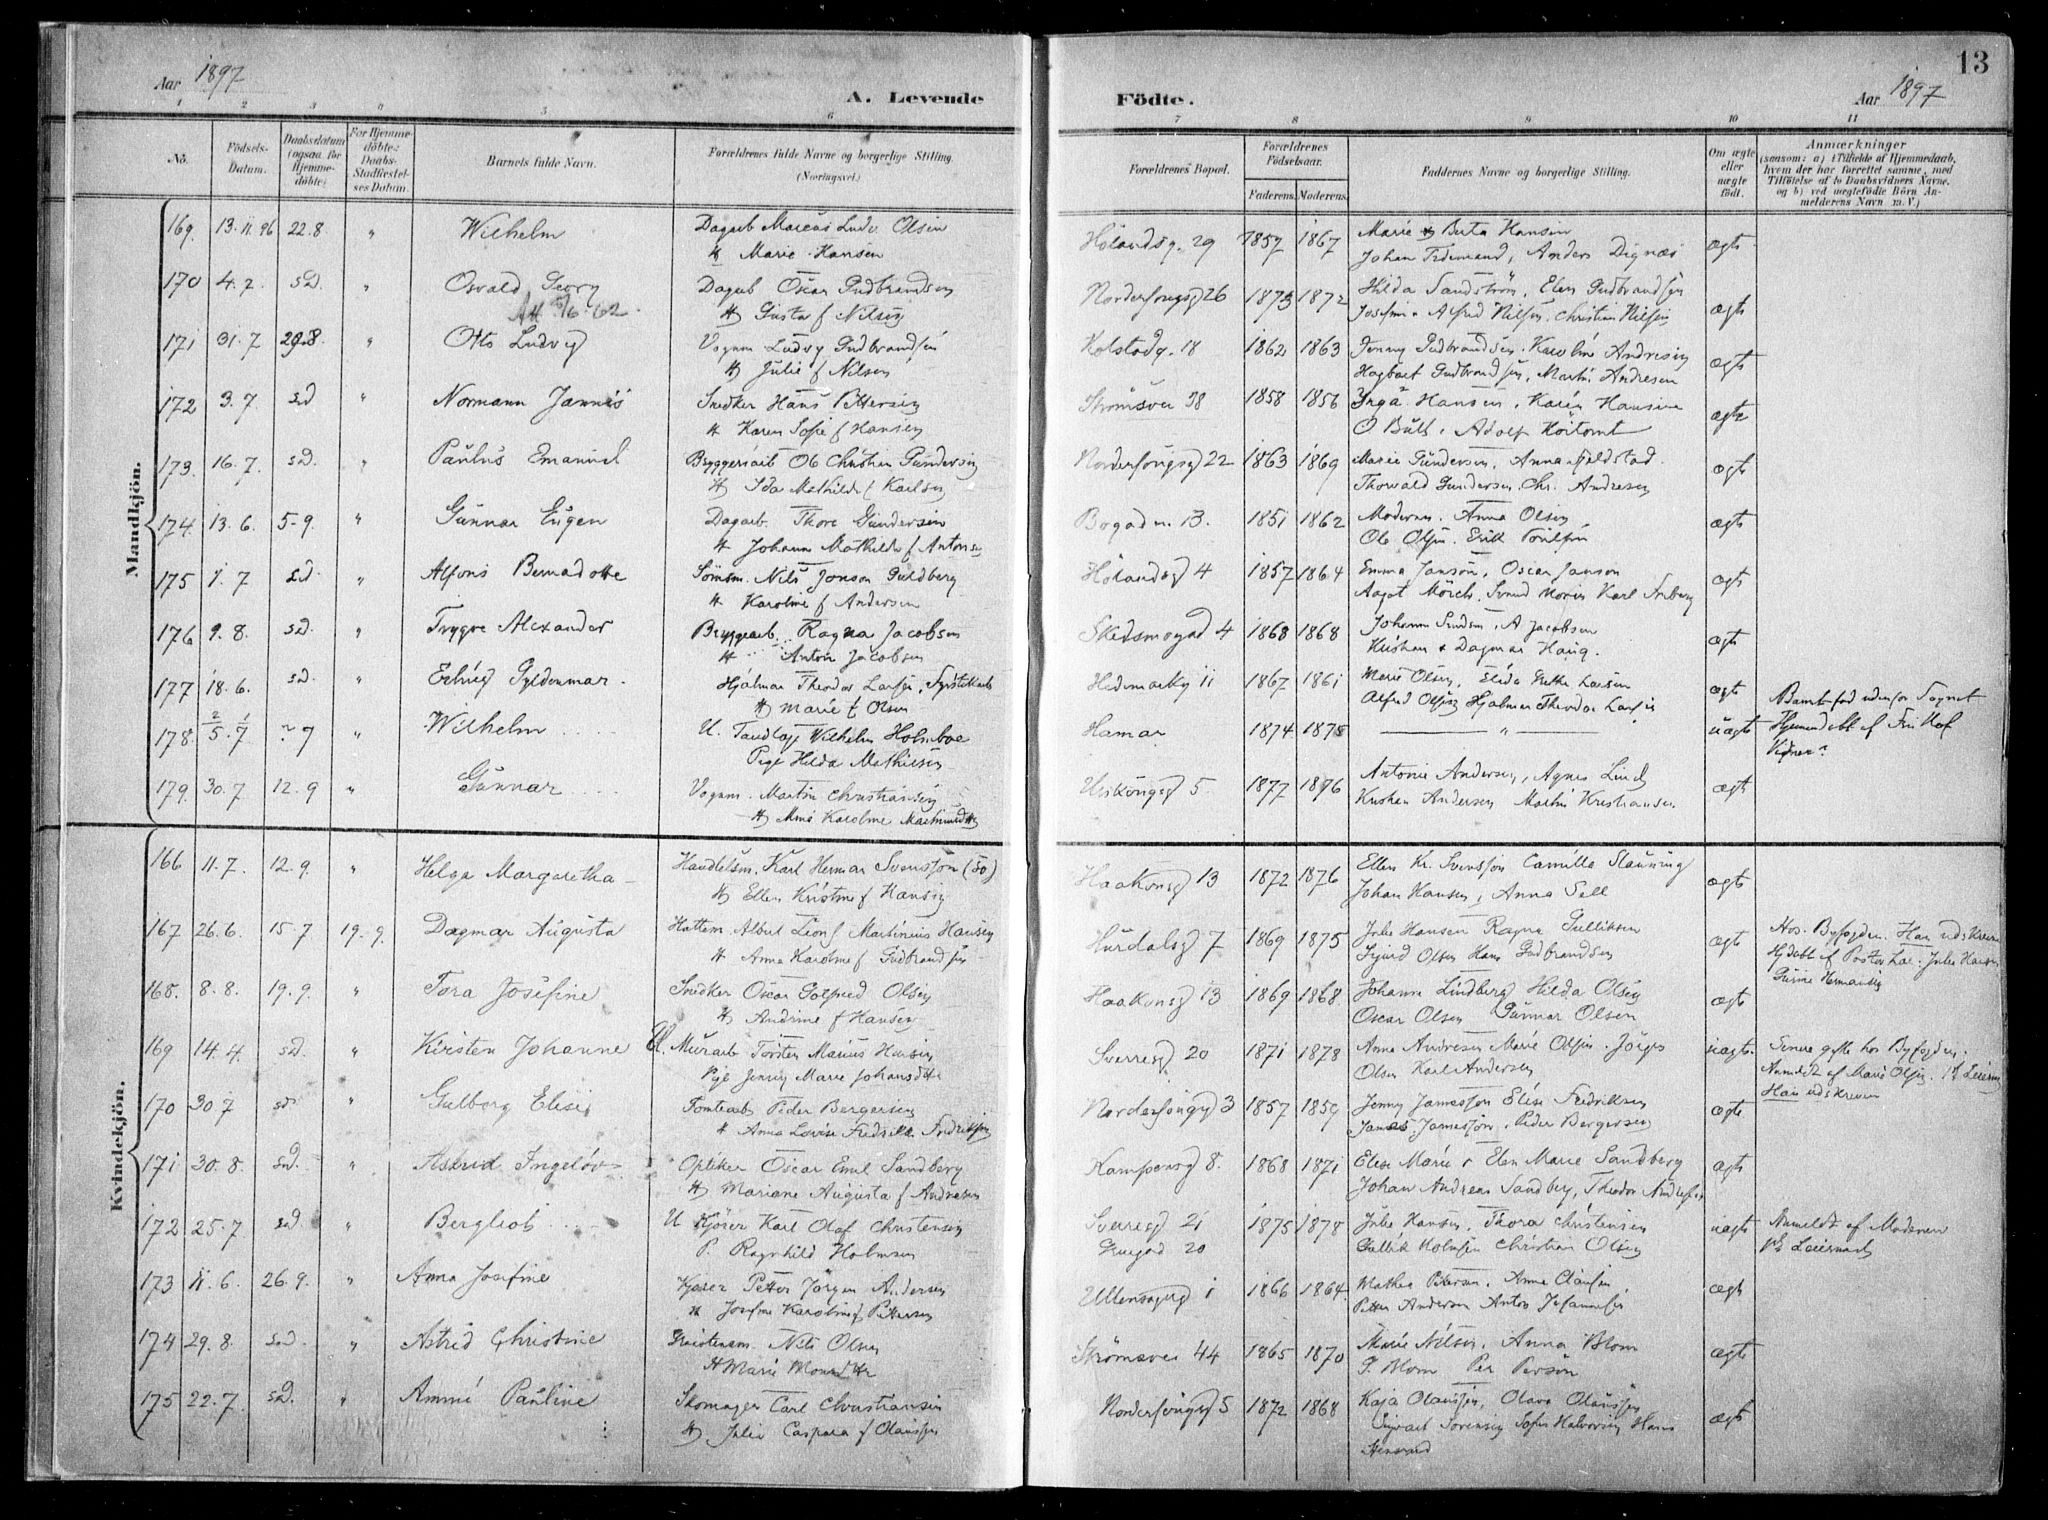 Aar 1897
A. Levende
Födte.
Aar 1897
13
1 2 3 4 5 6 7 8 9 10 11
No.
Födsels-Datum.
Daabsdatum (ogsaa for Hjemme-döbte)
For Hjemme-döbte: Daabs-Stadfæstel-ses Datum.
Barnets fulde Navn.
Forældrenes fulde Navne og borgerlige Stilling. (Næringsvei.)
Forældrenes Bopæl.
Forældrenes Födselsaar.
Faderens. Moderens.
Faddernes Navne og borgerlige Stilling.
Om ægte eller uægte födt.
Anmærkninger (saasom: a) i Tilfælde af Hjemmedaab, hvem der har forrettet samme, med Tilföielse af to Daabsvidners Navne, og b) ved uægtefödte Börn An-melderens Navn m. V.)
Mandkjön.
169. 13.11.96 22.8. " Wilhelm Dagarb Marcus Ludv. Olsen Hölandsg. 29 1857 1867 Marie & Berta Hansen ægte
H Marie Hansen Johan Tidemand, Anders Dignæs
170 4.7. sD. " Osvald Georg Dagarb Oscar Gudbrandsen Norderhougsg 26 1873 1872 Hilda Sandström, Elen Gudbrandsen ægte
H Gusta f Nilsen Alfred Nilsen. Christian Nilsen
171 31.7 29.8. " Otto Ludvig Vognm Ludvig Gudbrandsen Kolstadg. 18 1862 1863 Jenny Gudbrandsen. Karoline Andresen ægte
H Julie f Nilsen Hagbart Gudbrandsen, Martin Andresen
172 3.7. sd " Normann Jannes Snedker Hans Pettersen Strømsvei 38 1858 1856 Inga Hansen, Karen Hansine ægte
H Karen Sofie f Hansen O Bull, Adolf Hoitomt
173. 16.7. sD. " Paulus Emanuel Bryggeriarb Ole Christian Gundersen Norderhougsg 22 1863 1869 Marie Gundersen, Anna Fjeldstad. ægte
H Ida Mathilde f Karlsen Thorvald Gundersen. Chr. Andresen
174. 13.6. 5-9. " Gunnar Eugen Dagarb. Thore Gundersen 13. 1851 1862 Moderen. Anna Olsen ægte
H Johanne Mathilde f Antonsen Ole Olsen. Erik Poulsen
175 7.7 sd. " Alfons Bernadotte Sömsm. Nils Jonson Guldberg Hölandsg 4 1857 1864 Emma Janson, Oscar Janson ægte
H Karoline f Andersen Aagot Mörch. Karl Friberg
176 9.8. sd. " Trygve Alexander Bryggearb. Ragna Jacobsen Skedsmogad 4 1868 1868 Johanne A Jacobsen ægte
H Anton Jacobsen Kristian & Dagmar Haug.
177 18.6. sd. " Gyldenmar. Hjalmar Theodor Larsen, Hedmarkg 11 1867 1861 Marie Olsen, Elida Larsen ægte Barnet fød udenfor Sognet
H Marie f Olsen Alfred Olsen Hjalmar Theodor Larsen
178. 5.7 7 " Wilhelm U. Tandlæge Wilhelm Holmboe Hamar 1874 1875 " uægte Hjemmedøbt af
Pige Hilda Mathiesen Vidner?
179. 30.7 12.9 " Gunnar Vognm. Martin Christiansen 5. 1877 1876 Antonie Andersen, Agnes Lind ægte
H Karoline Kristian Andersen Martin Kristiansen
Kvindekjön.
166 11.7. 12.9. " Helga Margaretha Handelsm. Karl Herman Svensson (50) Haakonsg 13 1872 1876 Ellen Kr. Svensson Camilla ægte
H Ellen Kristine f Hansen Johan Hansen, Anna Sell
167 26.6. 15.7 19.9. Dagmar Augusta Hattem. Albert Martinius Hansen Hurdalsg 7 1869 1875 Julie Hansen Ragna Gulliksen ægte Hos Byfogden. Han udskreven
H Anna Karoline f Gudbrandsen Sigurd Olsen Hans Gudbrandsen Hjdøbt af Julie Hansen
168. 8.8. 19.9. " Tora Josefine Snedker Oscar Gotfred Olsen Haakonsg 13 1869 1868 Johanne Lindberg Hilda Olsen ægte
H Andrine f Hansen Oscar Olsen Gunnar Olsen
169 14.4. sd. " Kirsten Johanne U. Murarb Torsten Marius Hansen Sverresg 20 1871 1878 Anna Andresen Marie Olsen. uægte. Senere gifte hos Byfogden.
Pige Jenny Marie Johansdtr Olsen Karl Andersen Anmeldt af Marie Olsen.
170 30.7 sd. " Gulborg Elise Tomtearb Peder Bergersen Norderhougsg 3 1857 1859 Jenny Jamesson Elise Fredriksen ægte Han udskreven
H Anna Lovise Fredrikke Fredriksen James Jamesson, Peder Bergersen
171 30.8. sd. " Astrid Optiker Oscar Emil Sandberg Kampensg 8. 1868 1871 Elise Marie & Elen Marie Sandberg ægte
H Mariane Augusta f Andresen Johan Andreas Sandberg, Theodor Andresen
172 25.7 sd " Bergliot U Kjører Karl Olaf Christensen Sverresg 21 1875 1878 Julie Hansen, Thora Christensen uægte Anmeldt af Moderen
P. Ragnhild Holmsen 20 Gullik Holmsen Christian Olsen
173 11.6. 26.9. " Anna Josefine Kjører Petter Jörgen Andersen Ullensagerg 1 1866 1864. Mathea Petersen, Anna ægte
H Josefine Karoline f Pettersen Petter Andersen Anton
174 29.8. sd. " Astrid Christine Nils Olsen Strømsvei 44 1865 1870 Marie Nilsen, Anna Blom ægte
H Marie P. Blom Per Persön
175 22.7. sd. " Pauline Skomager Carl Christiansen Norderhougsg 5 1872 1868 Kaja Olaussen, Olava Olaussen ægte
H Julie Caspara f Olaussen Sörensen Sofus Halvorsen Hans